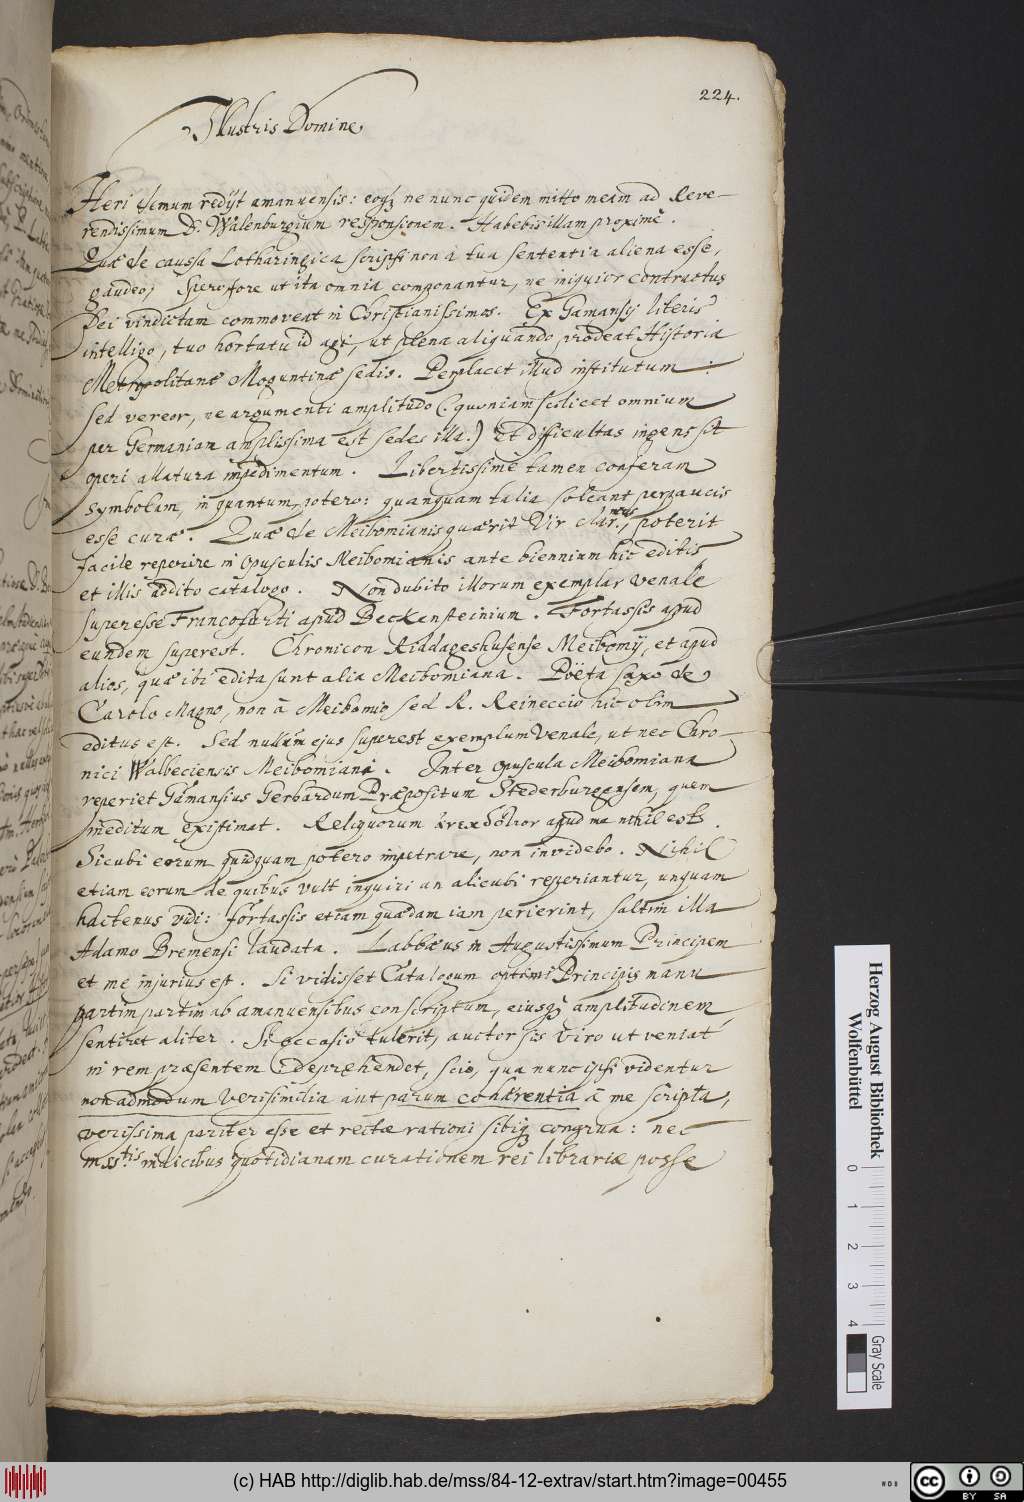 224.
Illustris Domine
Heri demum redijt amanuensis: eoq; ne nunc quidem mitto meam ad Reve-
rendissimum D. Walenburgium responsionem. Habebis illam proxime.
Quae de caussa Lotharingica scripsi non à tua sententia aliena esse,
gaudeo; Spero fore ut ita omnia componantur, ne iniquior contractus
Dei vindictam commoveat in Christianissimos. Ex Gamansij literis
intelligo, tuo hortatu id agi, ut plena aliquando prodeat Historia
Metropolitanae Moguntinae sedis. Perplacet illud institutum:
sed vereor, ne argumenti amplitudo (quoniam scilicet omnium
per Germaniam amplissima est sedes illa.) et difficultas ingens sit
operi allatura impedimentum. Libertissimè tamen conferam
symbolam, in quantum potero: quanquam talia soleant perpaucis
esse curae. Quae de Meibomianis quaerit Vir Clar.mus, poterit
facile reperire in opusculis Meibomianis ante biennium hic editis
et illis addito catalogo. Non dubito illorum exemplar venale
superesse Francofurti apud Beckensteinium. Fortassis apud
eundem superest. Chronicon Riddageshusense Meibomij, et apud
alios, quae ibi edita sunt alia Meibomiana. Poëta saxo de
Carolo Magno, non à Meibomio sed R. Reineccio hic olim
editus est. Sed nullum ejus superest exemplum venale, ut nec Chro-
nici Walbeciensis Meibomiani. Inter opuscula Meibomiana
reperiet Gamansius Gerhardum Praepositum Stederburgensem, quem
ineditum existimat. Reliquorum ἀνεκδότων apud me nihil est.
Sicubi eorum quidquam potero impetrare, non invidebo. Nihil
etiam eorum de quibus vult inquiri an alicubi reperiantur, unquam
hactenus vidi: fortassis etiam quaedam iam perierint, saltim illa
Adamo Bremensi laudata. Labbaeus in Augustissimum Principem
et me injurius est. Si vidisset Catalogum optimi Principis manu
partim partim ab amanuensibus conscriptum, eiusq; amplitudinem
sentiret aliter. Si occasio tulerit, auctor sis viro ut veniat
in rem praesentem Deprehendet, scio, qua nunc ipsi videntur
non admodum verisimilia aut parum cohaerentia à me scripta,
verissima pariter esse et rectae rationi sibiq; congrua: nec
msstis indicibus quotidianam curationem rei librariae posse
Herzog August Bibliothek
Wolfenbüttel
0 1 2 3 4
Gray Scale
(c) HAB http://diglib.hab.de/mss/84-12-extrav/start.htm?image=00455
cc BY SA